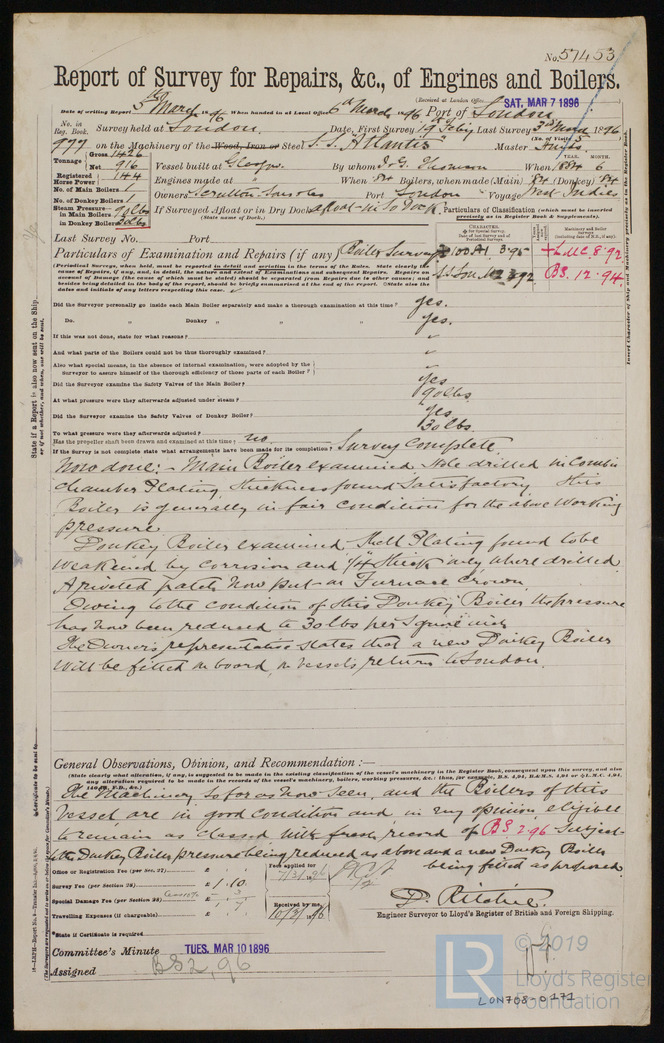 No. 57453
Report of Survey for Repairs, &c., of Engines and Boilers.
(Received at London Office SAT. MAR 7 1896
Date of writing Report 5th March 1896 When handed in at Local Office 6th March 1896 Port of London
No. in Reg. Book. Survey held at London. Date, First Survey 19th Feby Last Survey 3rd March 1896
(No. of Visits 5
977 on the Machinery of the Wood, Iron or Steel S.S. "Atlantis" Master
Tonnage Gross 1426 Net 916
Vessel built at Glasgow By whom J. & G. Thomson When 1884 6
YEAR. MONTH.
Registered Horse Power 144
Engines made at When 84 Boilers, when made (Main) 84 (Donkey) 84
No. of Main Boilers 1
No. of Donkey Boilers 1
Owners Scrutton Sons & Co Port London Voyage West Indies
Steam Pressure in Main Boilers 90 lbs
in Donkey Boilers 30 lbs
If Surveyed Afloat or in Dry Dock afloat
(State name of Dock.)
Particulars of Classification (which must be inserted precisely as in Register Book & Supplements).
Last Survey No. Port
CHARACTER.
Particulars of Examination and Repairs (if any) (Boiler Survey)
100A1 3.95
+L.M.C. 8.92
B.S. 12.94
(Periodical Surveys, when held, must be reported in detail and seriatim in the terms of the Rules. State clearly the cause of Repairs, if any, and, in detail, the nature and extent of Examinations and subsequent Repairs. Repairs on account of Damage (the cause of which must be stated) should be separated from Repairs due to other causes; and besides being detailed in the body of the report, should be briefly summarised at the end of the report. State also the dates and initials of any letters respecting this case.
Did the Surveyor personally go inside each Main Boiler separately and make a thorough examination at this time? yes.
Do. „ Donkey „ „ „ yes.
If this was not done, state for what reasons?
And what parts of the Boilers could not be thus thoroughly examined?
Also what special means, in the absence of internal examination, were adopted by the Surveyor to assure himself of the thorough efficiency of those parts of each Boiler?
Did the Surveyor examine the Safety Valves of the Main Boiler? yes
At what pressure were they afterwards adjusted under steam? 90 lbs.
Did the Surveyor examine the Safety Valves of Donkey Boiler? yes
To what pressure were they afterwards adjusted? 30 lbs.
Has the propeller shaft been drawn and examined at this time? no
If the Survey is not Complete state what arrangements have been made for its completion? Survey Complete
Now done: - Main Boiler examined Hole drilled in Combn
chamber Plating, thickness found Satisfactory This
Boiler is generally in fair condition for the above working
pressure
Donkey Boiler examined Shell Plating found to be
weakened by corrosion and 1/4" thick only where drilled
A riveted patch now put on Furnace Crown
Owing to the condition of this Donkey Boiler the pressure
has now been reduced to 30 lbs per square inch
The Owners representative states that a new Donkey Boiler
will be fitted on board on vessels return to London.
General Observations, Opinion, and Recommendation:—
(State clearly what alteration, if any, is suggested to be made in the existing classification of the vessel's machinery in the Register Book, consequent upon this survey, and also any alteration required to be made in the records of the vessel's machinery, boilers, working pressures, &c.
The Machinery so far as now seen, and the Boilers of this
Vessel are in good condition and in my opinion eligible
to remain as classed with fresh record of B.S. 2.96 Subject
to the Donkey Boiler pressure being reduced as above and a new Donkey Boiler
being fitted as proposed.
Office or Registration Fee (per Sec. 27) £
Fees applied for 7/3/96
Survey Fee (per Section 28) £ 1.10.
Special Damage Fee (per Section 28) £
Travelling Expenses (if chargeable) £
Received by me, 10/3/96
D. Ritchie.
Engineer Surveyor to Lloyd's Register of British and Foreign Shipping.
State if Certificate is required
Committee's Minute TUES. MAR 10 1896
Assigned BS 2,96
State if a Report is also now sent on the Ship.
Insert Character of Ship and Machinery precisely as in the Register Book.
LR
© 2019
Lloyd's Register
Foundation
LON708-0171